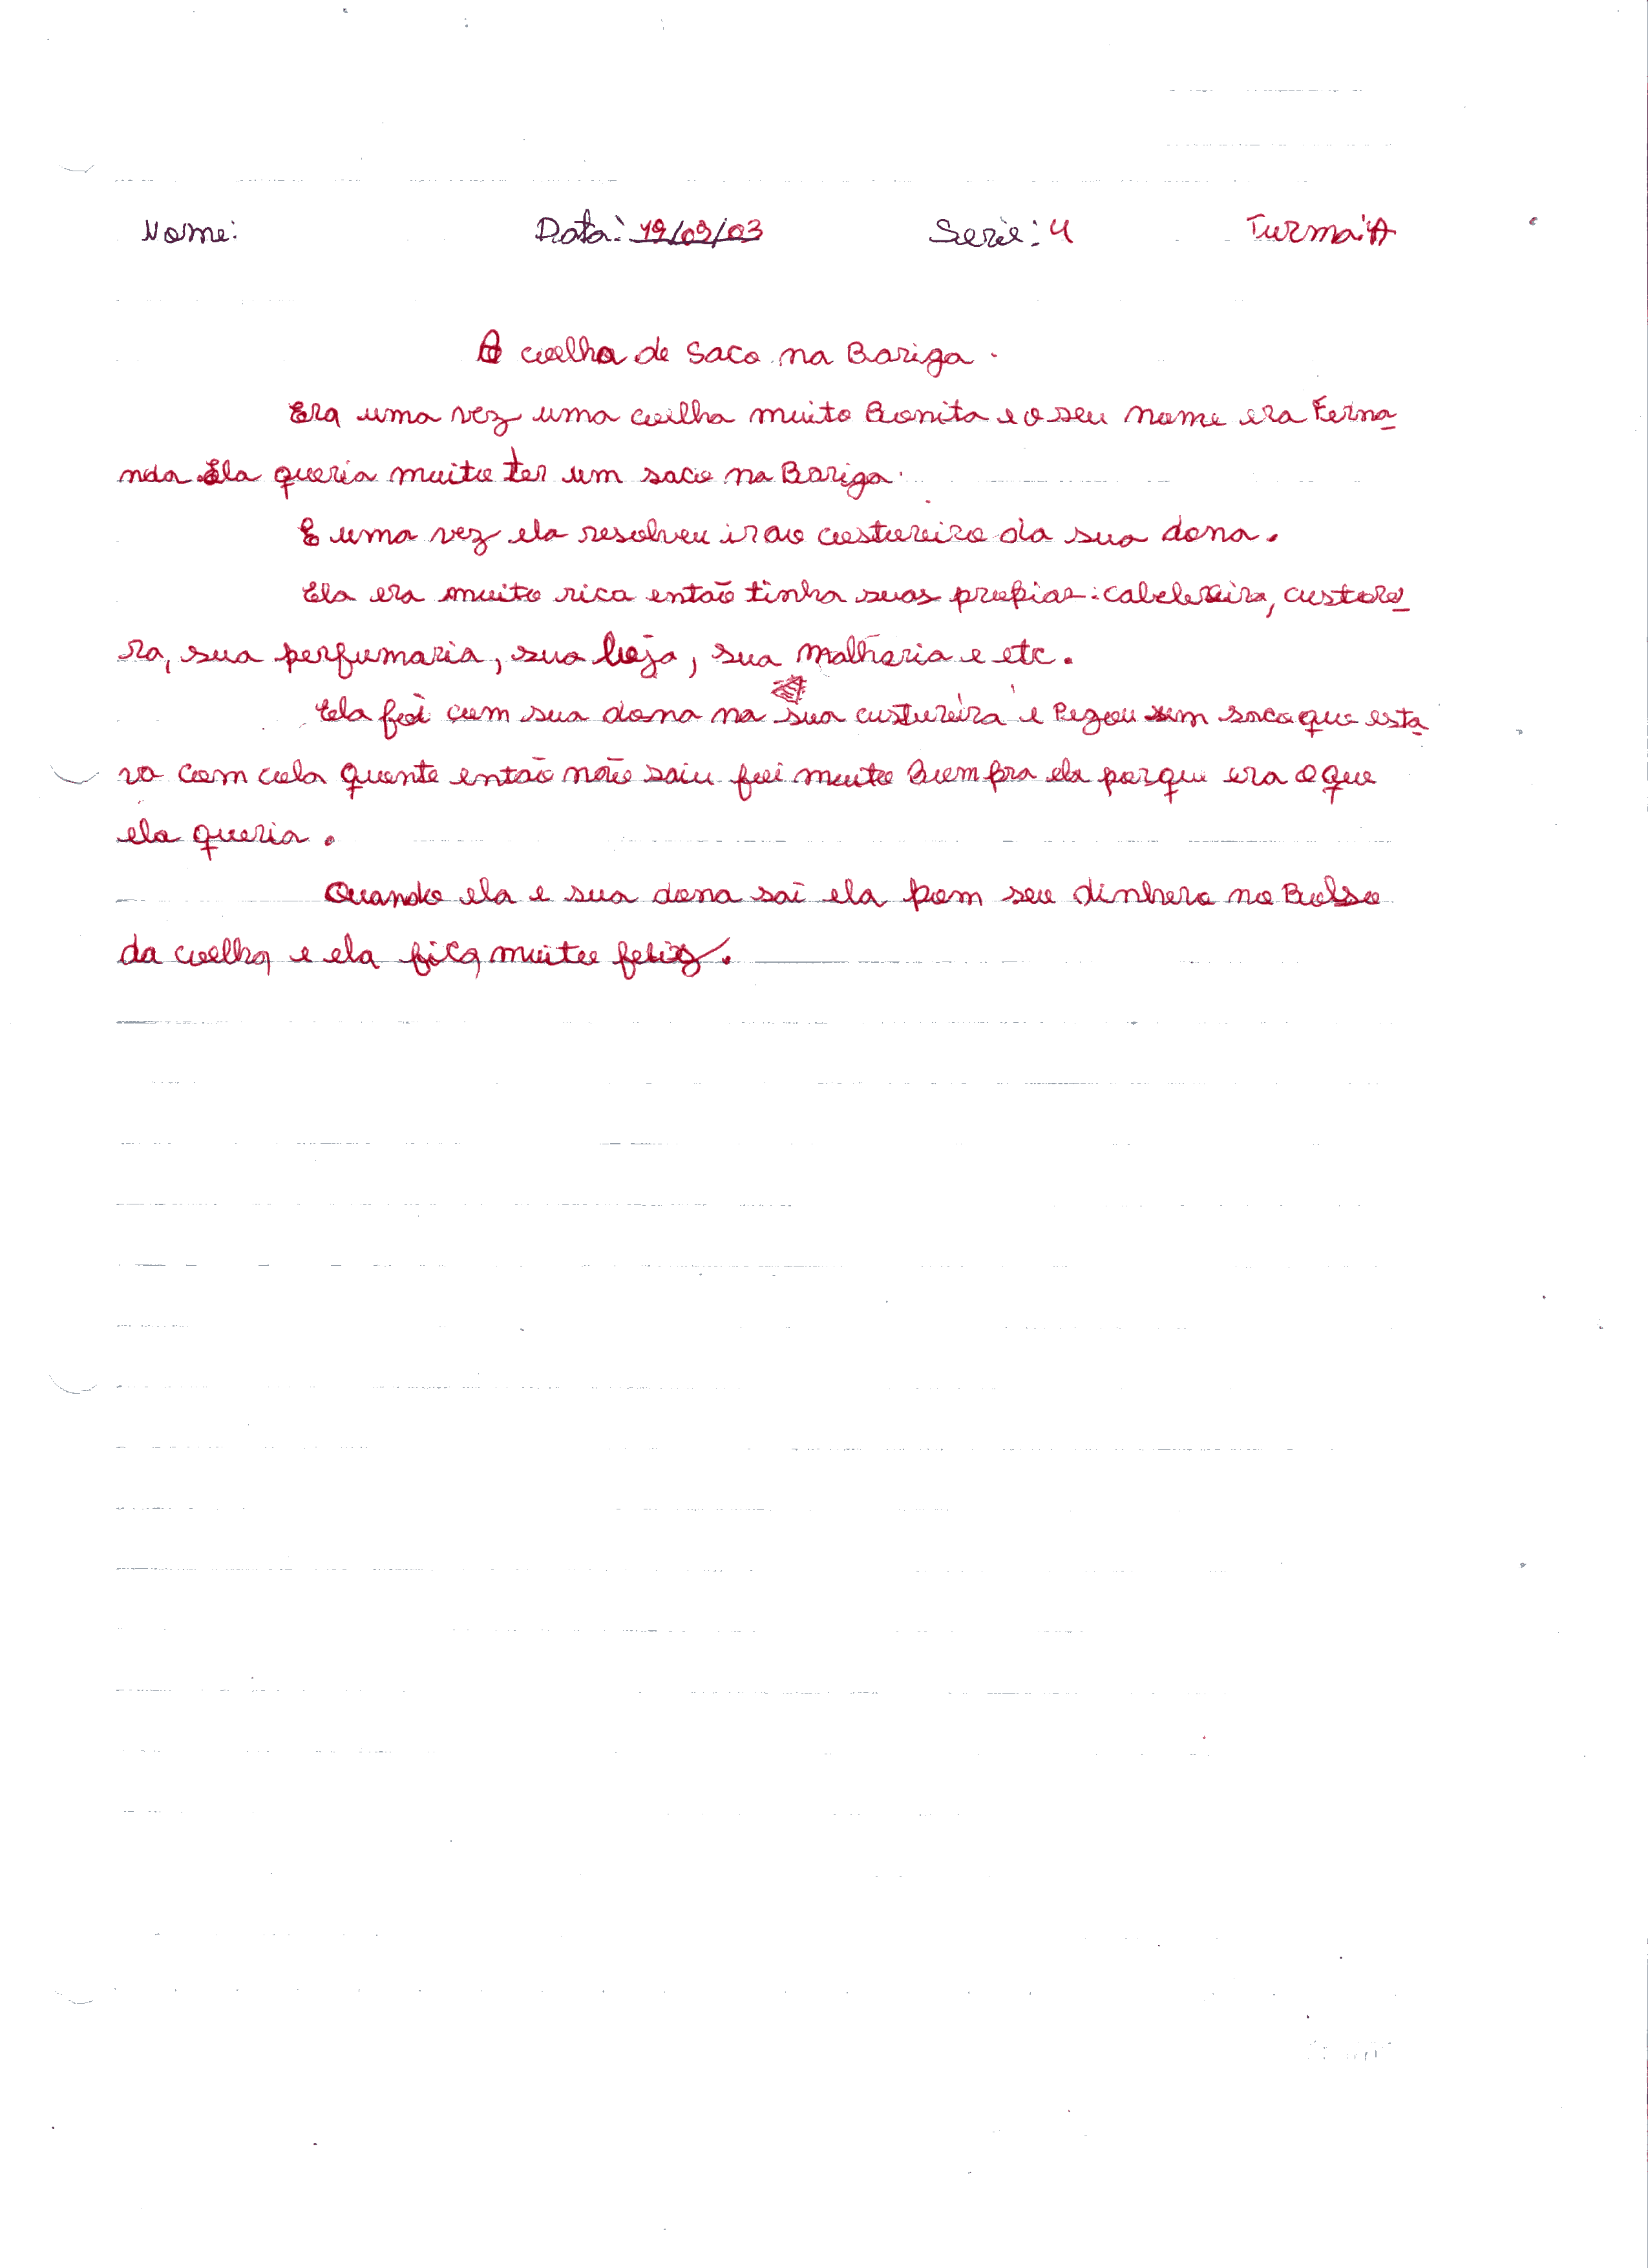 Nome: Data: 19/09/03 Serie: 4 Turma: A
A coelha de saco na Bariga.
Era uma vez uma coelha muito Bonita e o seu nome era Ferna
nda. Ela queria muito ter um saco na Bariga.
E uma vez ela resolveu ir ao custureiro da sua dona.
Ela era muito rica então tinha suas propias: cabelereira, custore
ra, sua perfumaria, sua loja, sua malharia e etc.
Ela foi com sua dona na sua custureira e Pegou um saco que esta
va com cola quente então não saiu foi muito bom pra ela porque era o que
ela queria.
Quando ela e sua dona sai ela pom seu dinhero no Bolso
da coelha e ela fica muito feliz.